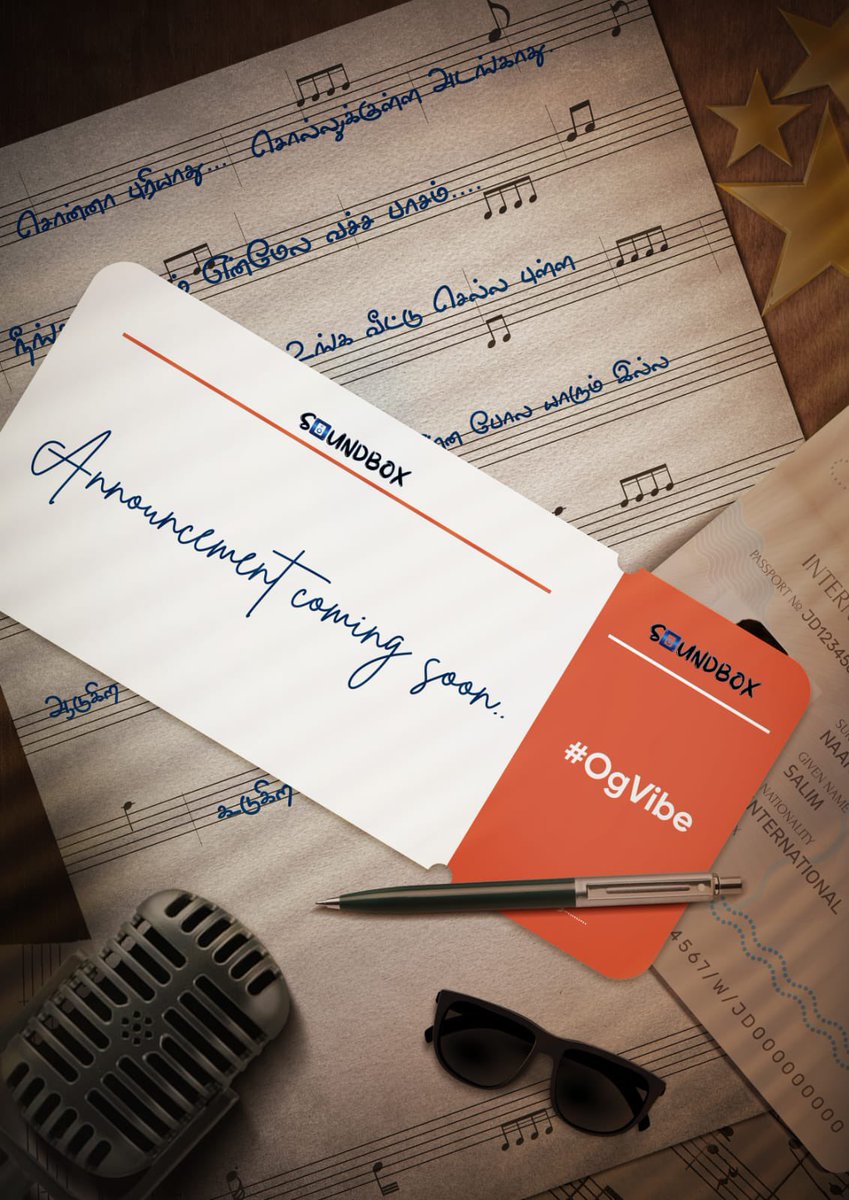 சொன்னா புரியாது... சொல்லுக்குள்ள அடங்காது.
என்மேல வச்ச பாசம்....
உங்க வீட்டு செல்ல புள்ள
போல யாரும் இல்ல
SOUNDBOX
Announcement coming soon..
SOUNDBOX
#OgVibe
ஆடுகிற
கூடுகிற
PASSPORT No
GIVEN NAME
SALIM
NATIONALITY
INTERNATIONAL
4567/W/JD000000000